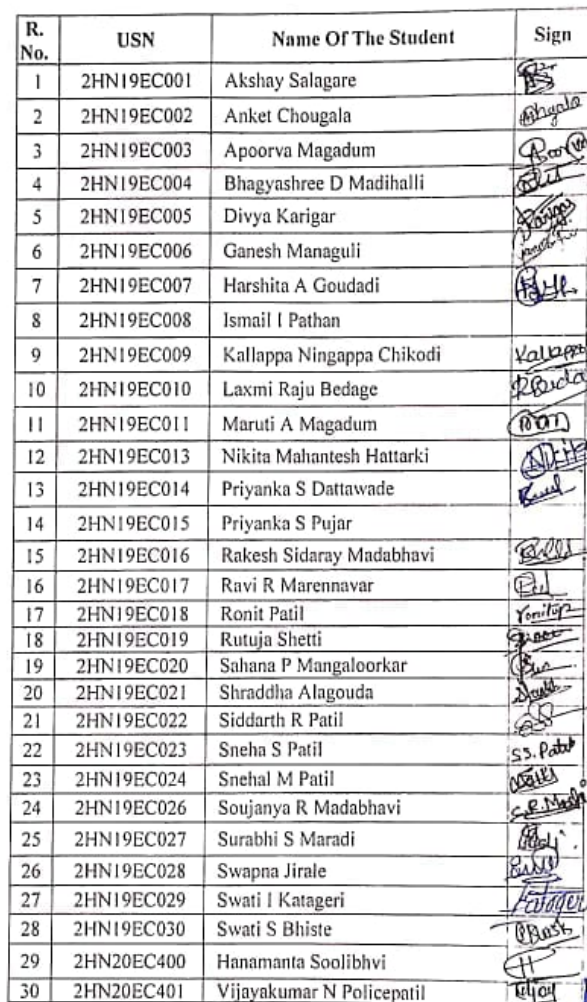 R. No. USN Name Of The Student Sign
1 2HN19EC001 Akshay Salagare
2 2HN19EC002 Anket Chougala
3 2HN19EC003 Apoorva Magadum
4 2HN19EC004 Bhagyashree D Madihalli
5 2HN19EC005 Divya Karigar
6 2HN19EC006 Ganesh Managuli
7 2HN19EC007 Harshita A Goudadi
8 2HN19EC008 Ismail I Pathan
9 2HN19EC009 Kallappa Ningappa Chikodi Kallappa
10 2HN19EC010 Laxmi Raju Bedage
11 2HN19EC011 Maruti A Magadum
12 2HN19EC013 Nikita Mahantesh Hattarki
13 2HN19EC014 Priyanka S Dattawade
14 2HN19EC015 Priyanka S Pujar
15 2HN19EC016 Rakesh Sidaray Madabhavi
16 2HN19EC017 Ravi R Marennavar
17 2HN19EC018 Ronit Patil
18 2HN19EC019 Rutuja Shetti
19 2HN19EC020 Sahana P Mangaloorkar
20 2HN19EC021 Shraddha Alagouda
21 2HN19EC022 Siddarth R Patil
22 2HN19EC023 Sneha S Patil SS. Patil
23 2HN19EC024 Snehal M Patil
24 2HN19EC026 Soujanya R Madabhavi
25 2HN19EC027 Surabhi S Maradi
26 2HN19EC028 Swapna Jirale
27 2HN19EC029 Swati I Katageri
28 2HN19EC030 Swati S Bhiste
29 2HN20EC400 Hanamanta Soolibhvi
30 2HN20EC401 Vijayakumar N Policepatil